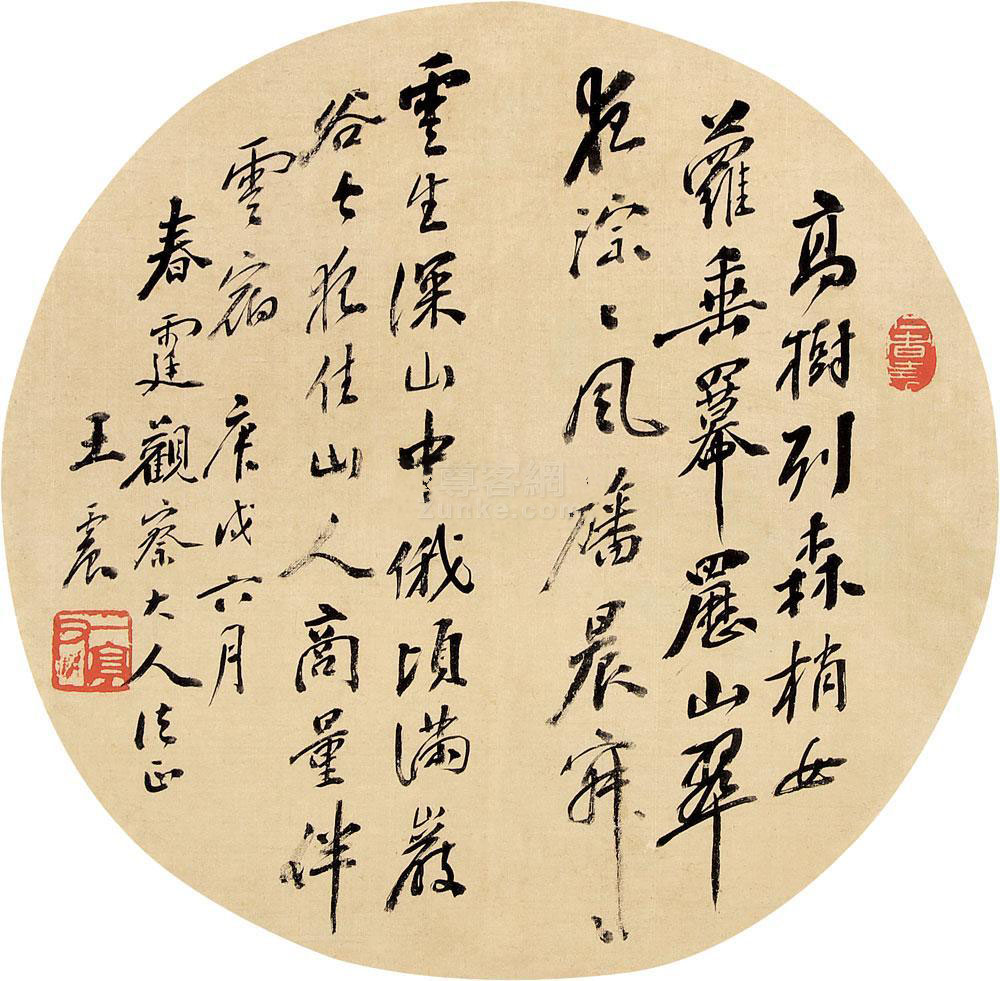 高樹列森梢女
蘿垂羃䍥山翠
夜淙〻風磻晨寂〻
雲生深山中俄頃滿巖
谷住山人商量伴
雲宿 庚戌六月
春霆觀察大人法正
王震
尊客網
Zunke.com